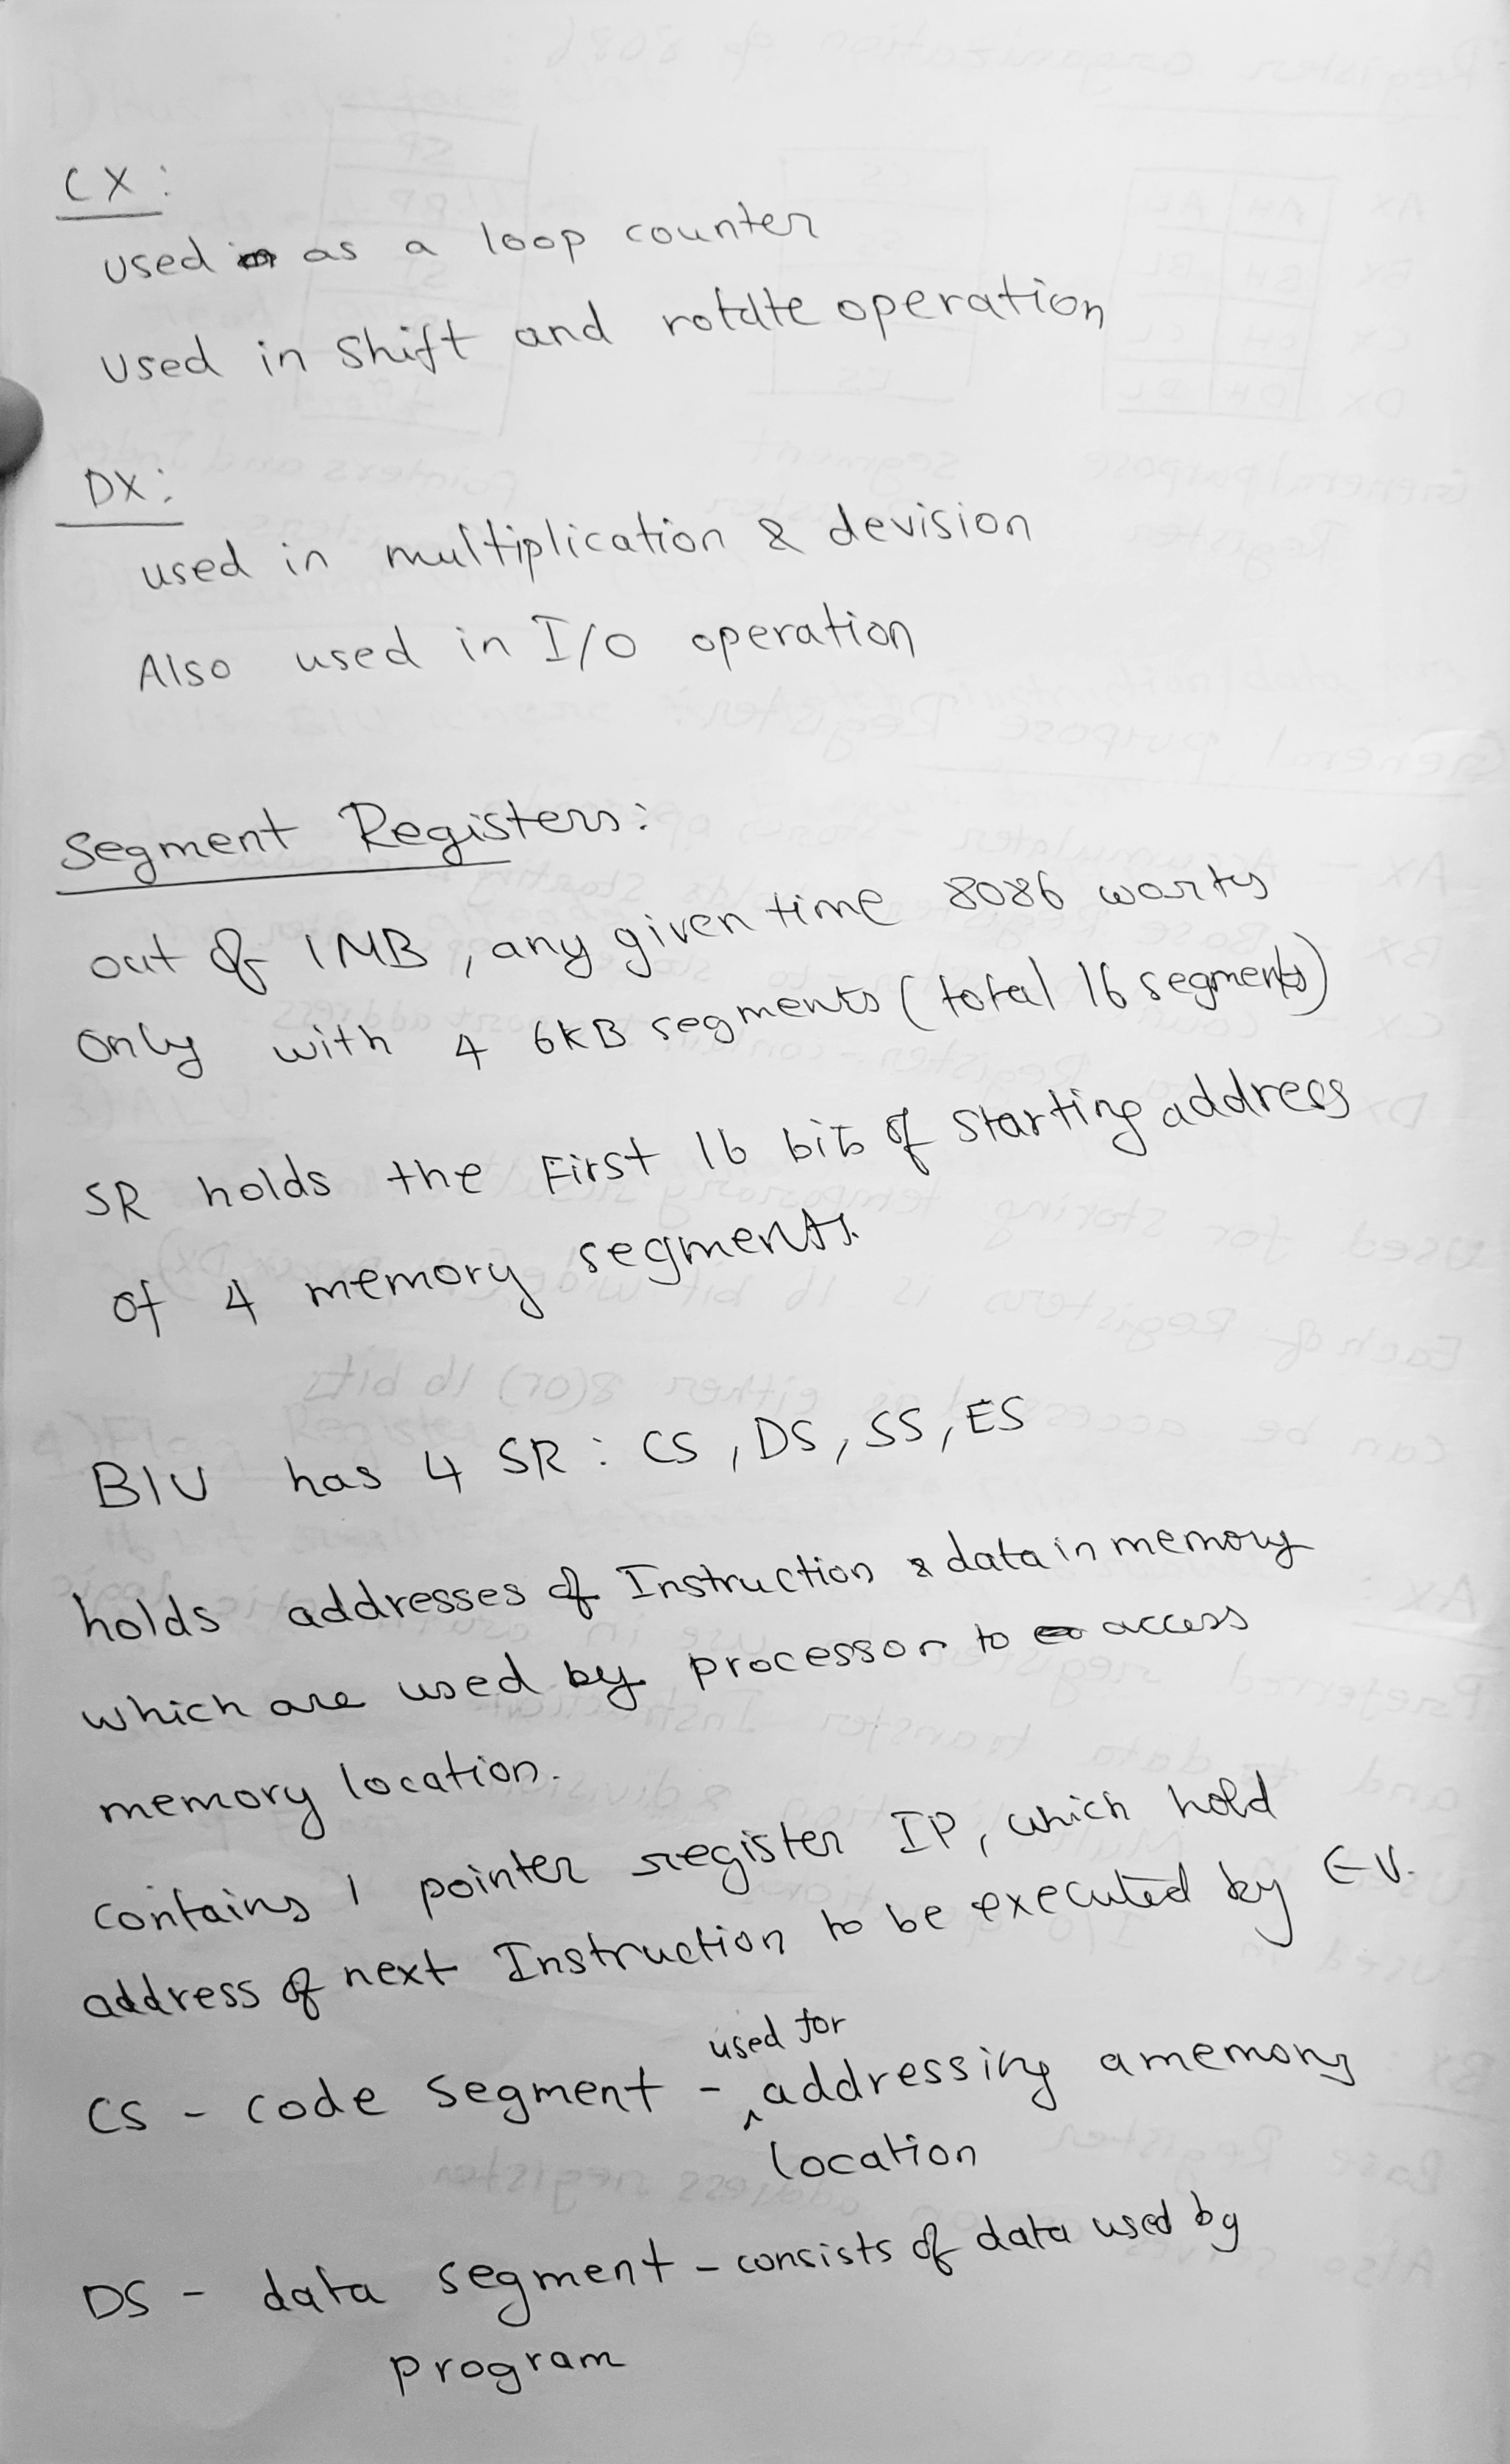 CX:
used as a loop counter
used in shift and rotate operation
DX:
used in multiplication & devision
Also used in I/O operation
Segment Registers:
out of 1MB, any given time 8086 works
only with 4 6KB segments (total 16 segments)
SR holds the First 16 bits of starting address
of 4 memory segments.
BIU has 4 SR: CS, DS, SS, ES
holds addresses of Instruction & data in memory
which are used by processor to access
memory location.
contains 1 pointer register IP, which hold
address of next Instruction to be executed by EU.
used for
CS - code segment - addressing a memory
location
DS - data segment - consists of data used by
program